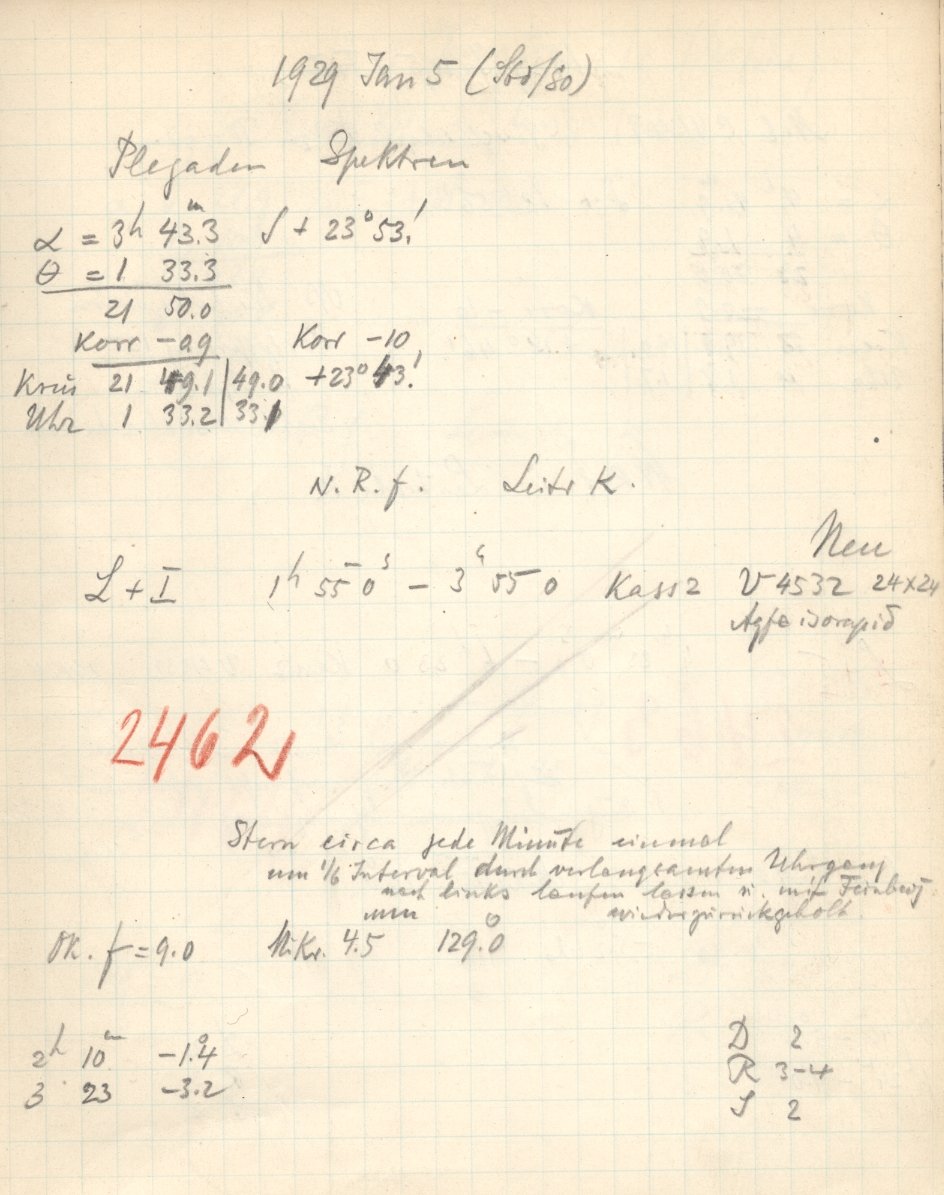 1929 Jan 5 (Stö/So)
Plegaden Spektren
α = 3h 43.3m δ + 23°53.'
θ = 1 33.3
21 50.0
Korr -09 Korr -10
Kreis 21 49.1 | 49.0 +23°43.'
Uhr 1 33.2 | 33.1
N. R. f. Leitr K.
Neu
L + I 1h 55 0s - 3h 55 0 Kass 2 V 4532 24x24
Agfa isorapid
2462
Stern circa jede Minute einmal
um 1/6 Interval durch verlangsamten Uhrgang
nach links laufen lassen u. mit Feinbeweg
nun wieder zurückgeholt.
Ok. f = 9.0 Mikr. 4.5 129.°0
2h 10m -1.°4
3 23 -3.2
D 2
R 3-4
S 2